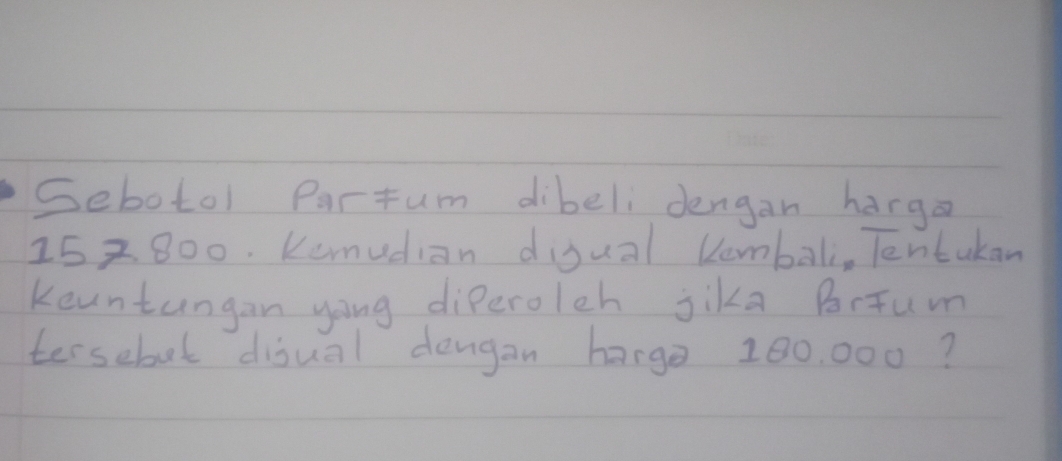 Date:
Sebotol Parfum dibeli dengan harga
157.800. Kemudian dijual kembali. Tentukan
keuntungan yang diperoleh jika Parfum
tersebut dijual dengan harga 180.000 ?